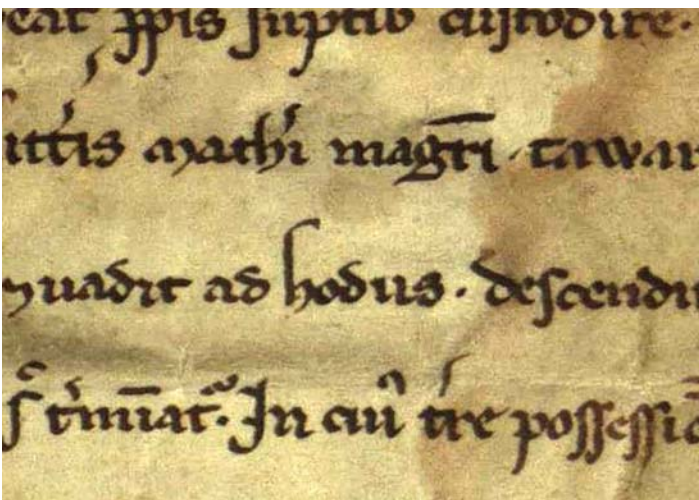 eat ꝓpis suptib custodire.
itt'is mathi magr̄i. tawar
nuadit ad hodus. descendit
s' t'minat. In cui' t're possessio